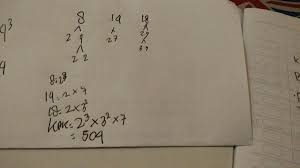 9³
8 14 18
2 4 2 7 2 9
2 2 3 3
8=2³
14=2×7
18=2×3²
LCM=2³×3²×7
=504